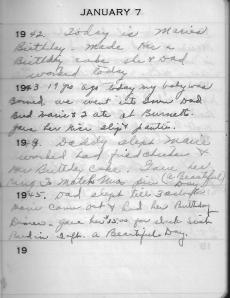 JANUARY 7
1942. Today is Maries
Birthday. Made her a
Birthday cake she & Dad
worked today
1943 19 yrs ago today my baby was
Born. we went into town Dad
Bud Marie & I ate at Burnett.
gave her nice slip & panties.
194 Daddy slept Marie
worked had fried chicken &
her Birthday Cake. I gave her
ring to match (a Beautiful
Day)
1945. Dad slept till 3 oclock
Marie came out & had her Birthday
Dinner. gave her
Bud in A Beautiful Day.
19